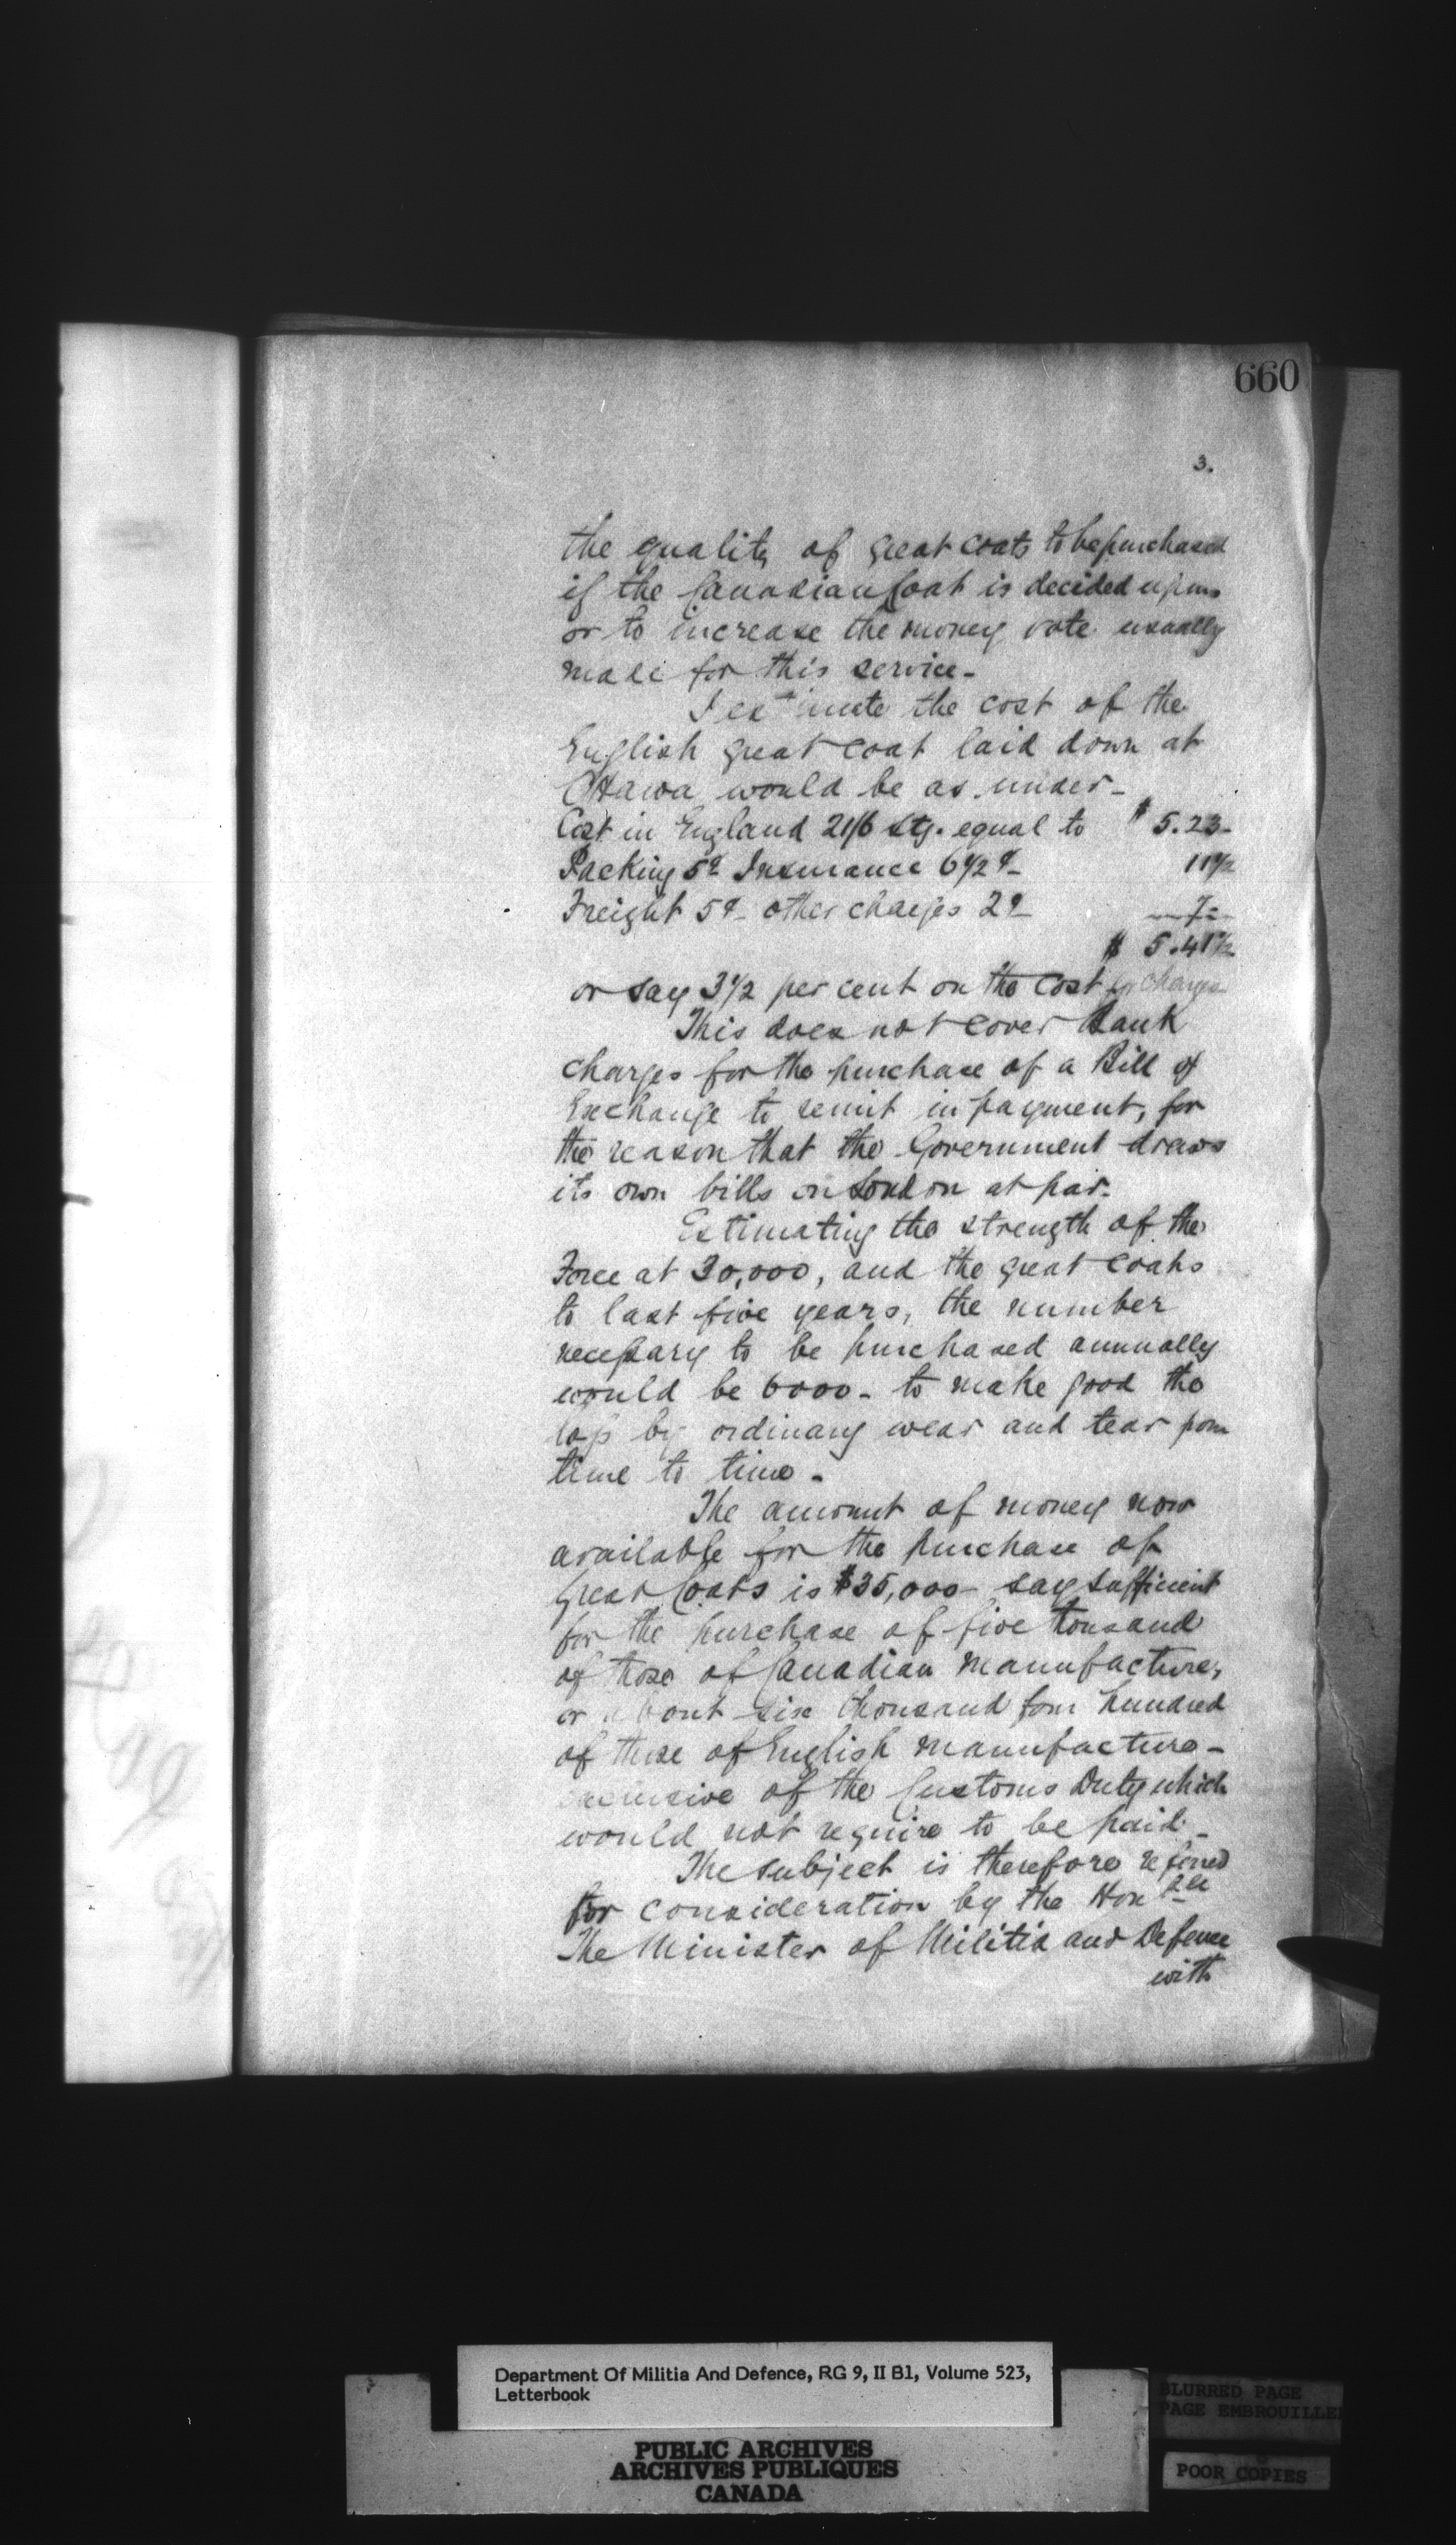 660
3.
the quality of great coats to be purchased
if the Canadian Coat is decided upon
or to increase the money vote usually
made for this service -
I estimate the cost of the
English great coat laid down at
Ottawa would be as under -
Cost in England 21/6 stg. equal to $ 5.23 -
Packing 5¢ Insurance 6 1/2 ¢ - 11 1/2
Freight 5¢ - other charges 2¢ 7 -
$ 5.41 1/2
or say 3 1/2 per cent on the cost for charges
This does not cover Bank
charges for the purchase of a Bill of
Exchange to remit in payment, for
the reason that the Government draws
its own bills on London at par.
Estimating the strength of the
Force at 30,000, and the great coats
to last five years, the number
necessary to be purchased annually
would be 6000 - to make good the
loss by ordinary wear and tear from
time to time -
The amount of money now
available for the purchase of
Great Coats is $35,000 - say sufficient
for the purchase of five tousand
of those of Canadian manufacture,
or about six thousand four hundred
of those of English manufacture -
exclusive of the Customs Duty which
would not require to be paid -
The subject is therefore referred
for consideration by the Honble
The Minister of Militia and Defence
with
Department Of Militia And Defence, RG 9, II B1, Volume 523,
Letterbook
PUBLIC ARCHIVES
ARCHIVES PUBLIQUES
CANADA
BLURRED PAGE
PAGE EMBROUILLE
POOR COPIES